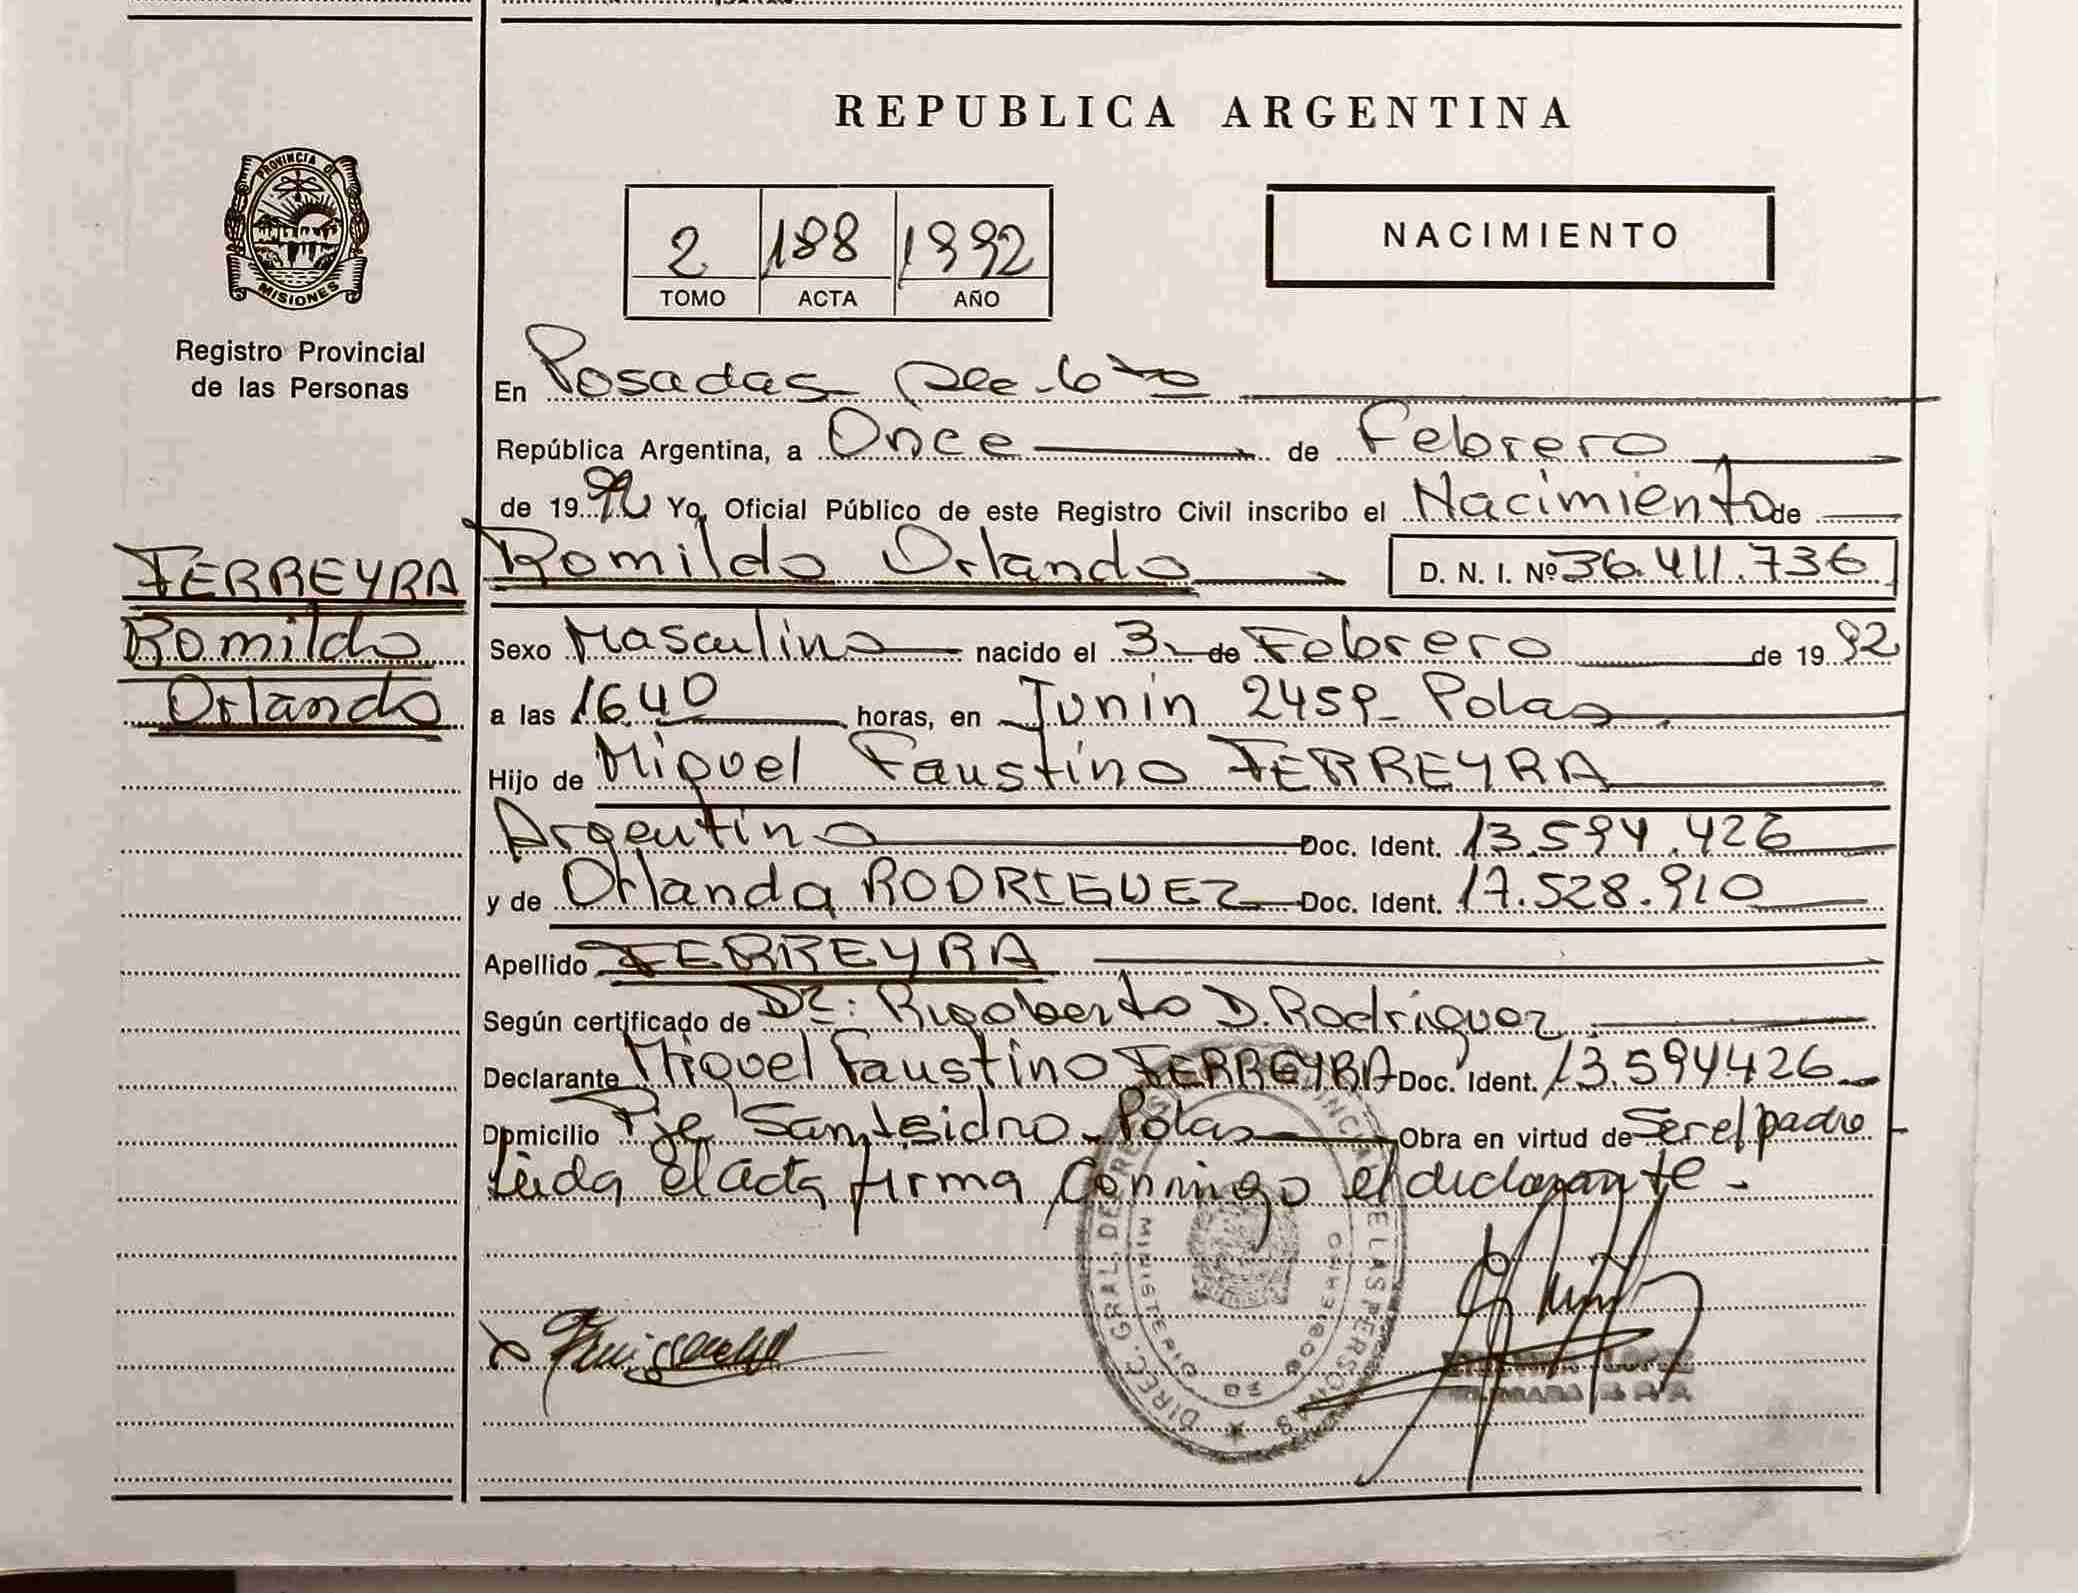 REPUBLICA ARGENTINA
PROVINCIA D
MISIONES
Registro Provincial
de las Personas
2 188 1992
TOMO ACTA AÑO
NACIMIENTO
En Posadas
República Argentina, a Once de Febrero
de 1992 Yo, Oficial Público de este Registro Civil inscribo el Nacimiento de
FERREYRA
Romildo
Orlando
Romildo Orlando D. N. I. Nº 36.411.736
Sexo Masculino nacido el 3 de Febrero de 1992
a las 16.40 horas, en Junín 2459 - Pdas
Hijo de Miguel Faustino FERREYRA
Argentino Doc. Ident. 13.594.426
y de Orlanda RODRIGUEZ Doc. Ident. 17.528.910
Apellido FERREYRA
Según certificado de Dr: Rigoberto D. Rodríguez
Declarante Miguel Faustino FERREYRA Doc. Ident. 13.594426
Domicilio Pje San Isidro - Pdas Obra en virtud de Ser el padre
Leida el acta firma conmigo el declarante -
DIREC. GRAL. DE REGISTRO PROVINCIAL DE LAS PERSONAS
MINISTERIO DE GOBIERNO